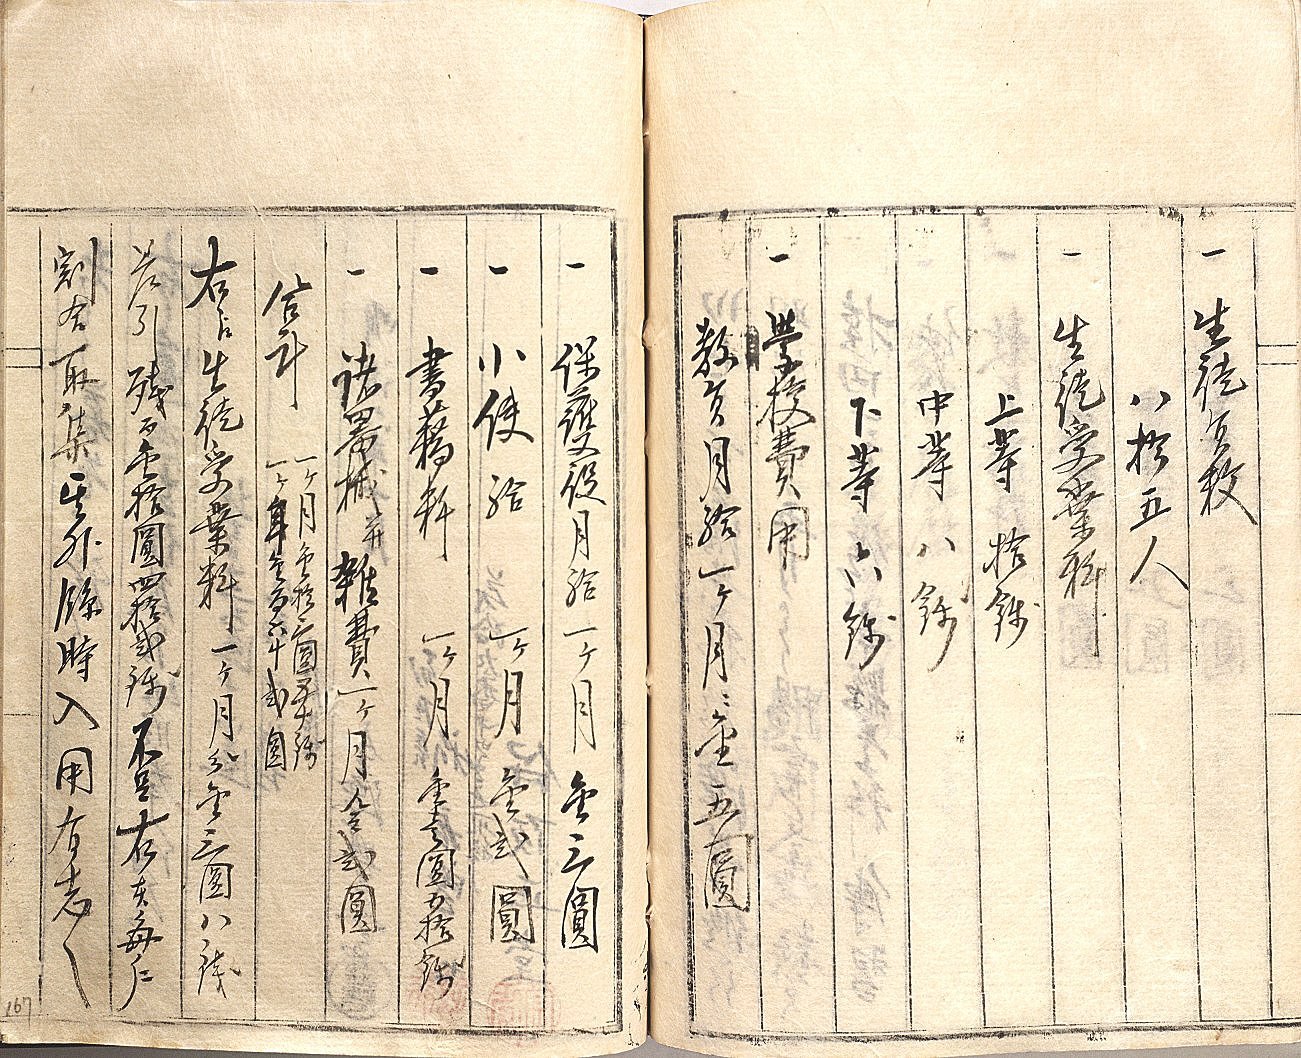 一 生徒員数
八拾五人
一 生徒受業料
上等 拾銭
中等 八銭
下等 六銭
一 學校費用
教員月給一ヶ月ニ金五圓
一 保護役月給一ヶ月金三圓
一 小使給 一ヶ月 金弐圓
一 書籍料 一ヶ月 金壱圓五拾銭
一 諸器械并雑費一ヶ月金弐圓
合計 一ヶ月金拾三圓五十銭
一ヶ年金百六十弐圓
右 生徒受業料一ヶ月分金三圓八銭
差引残而金拾圓四拾弐銭不足右 毎
割合取集其外臨時入用有志
167